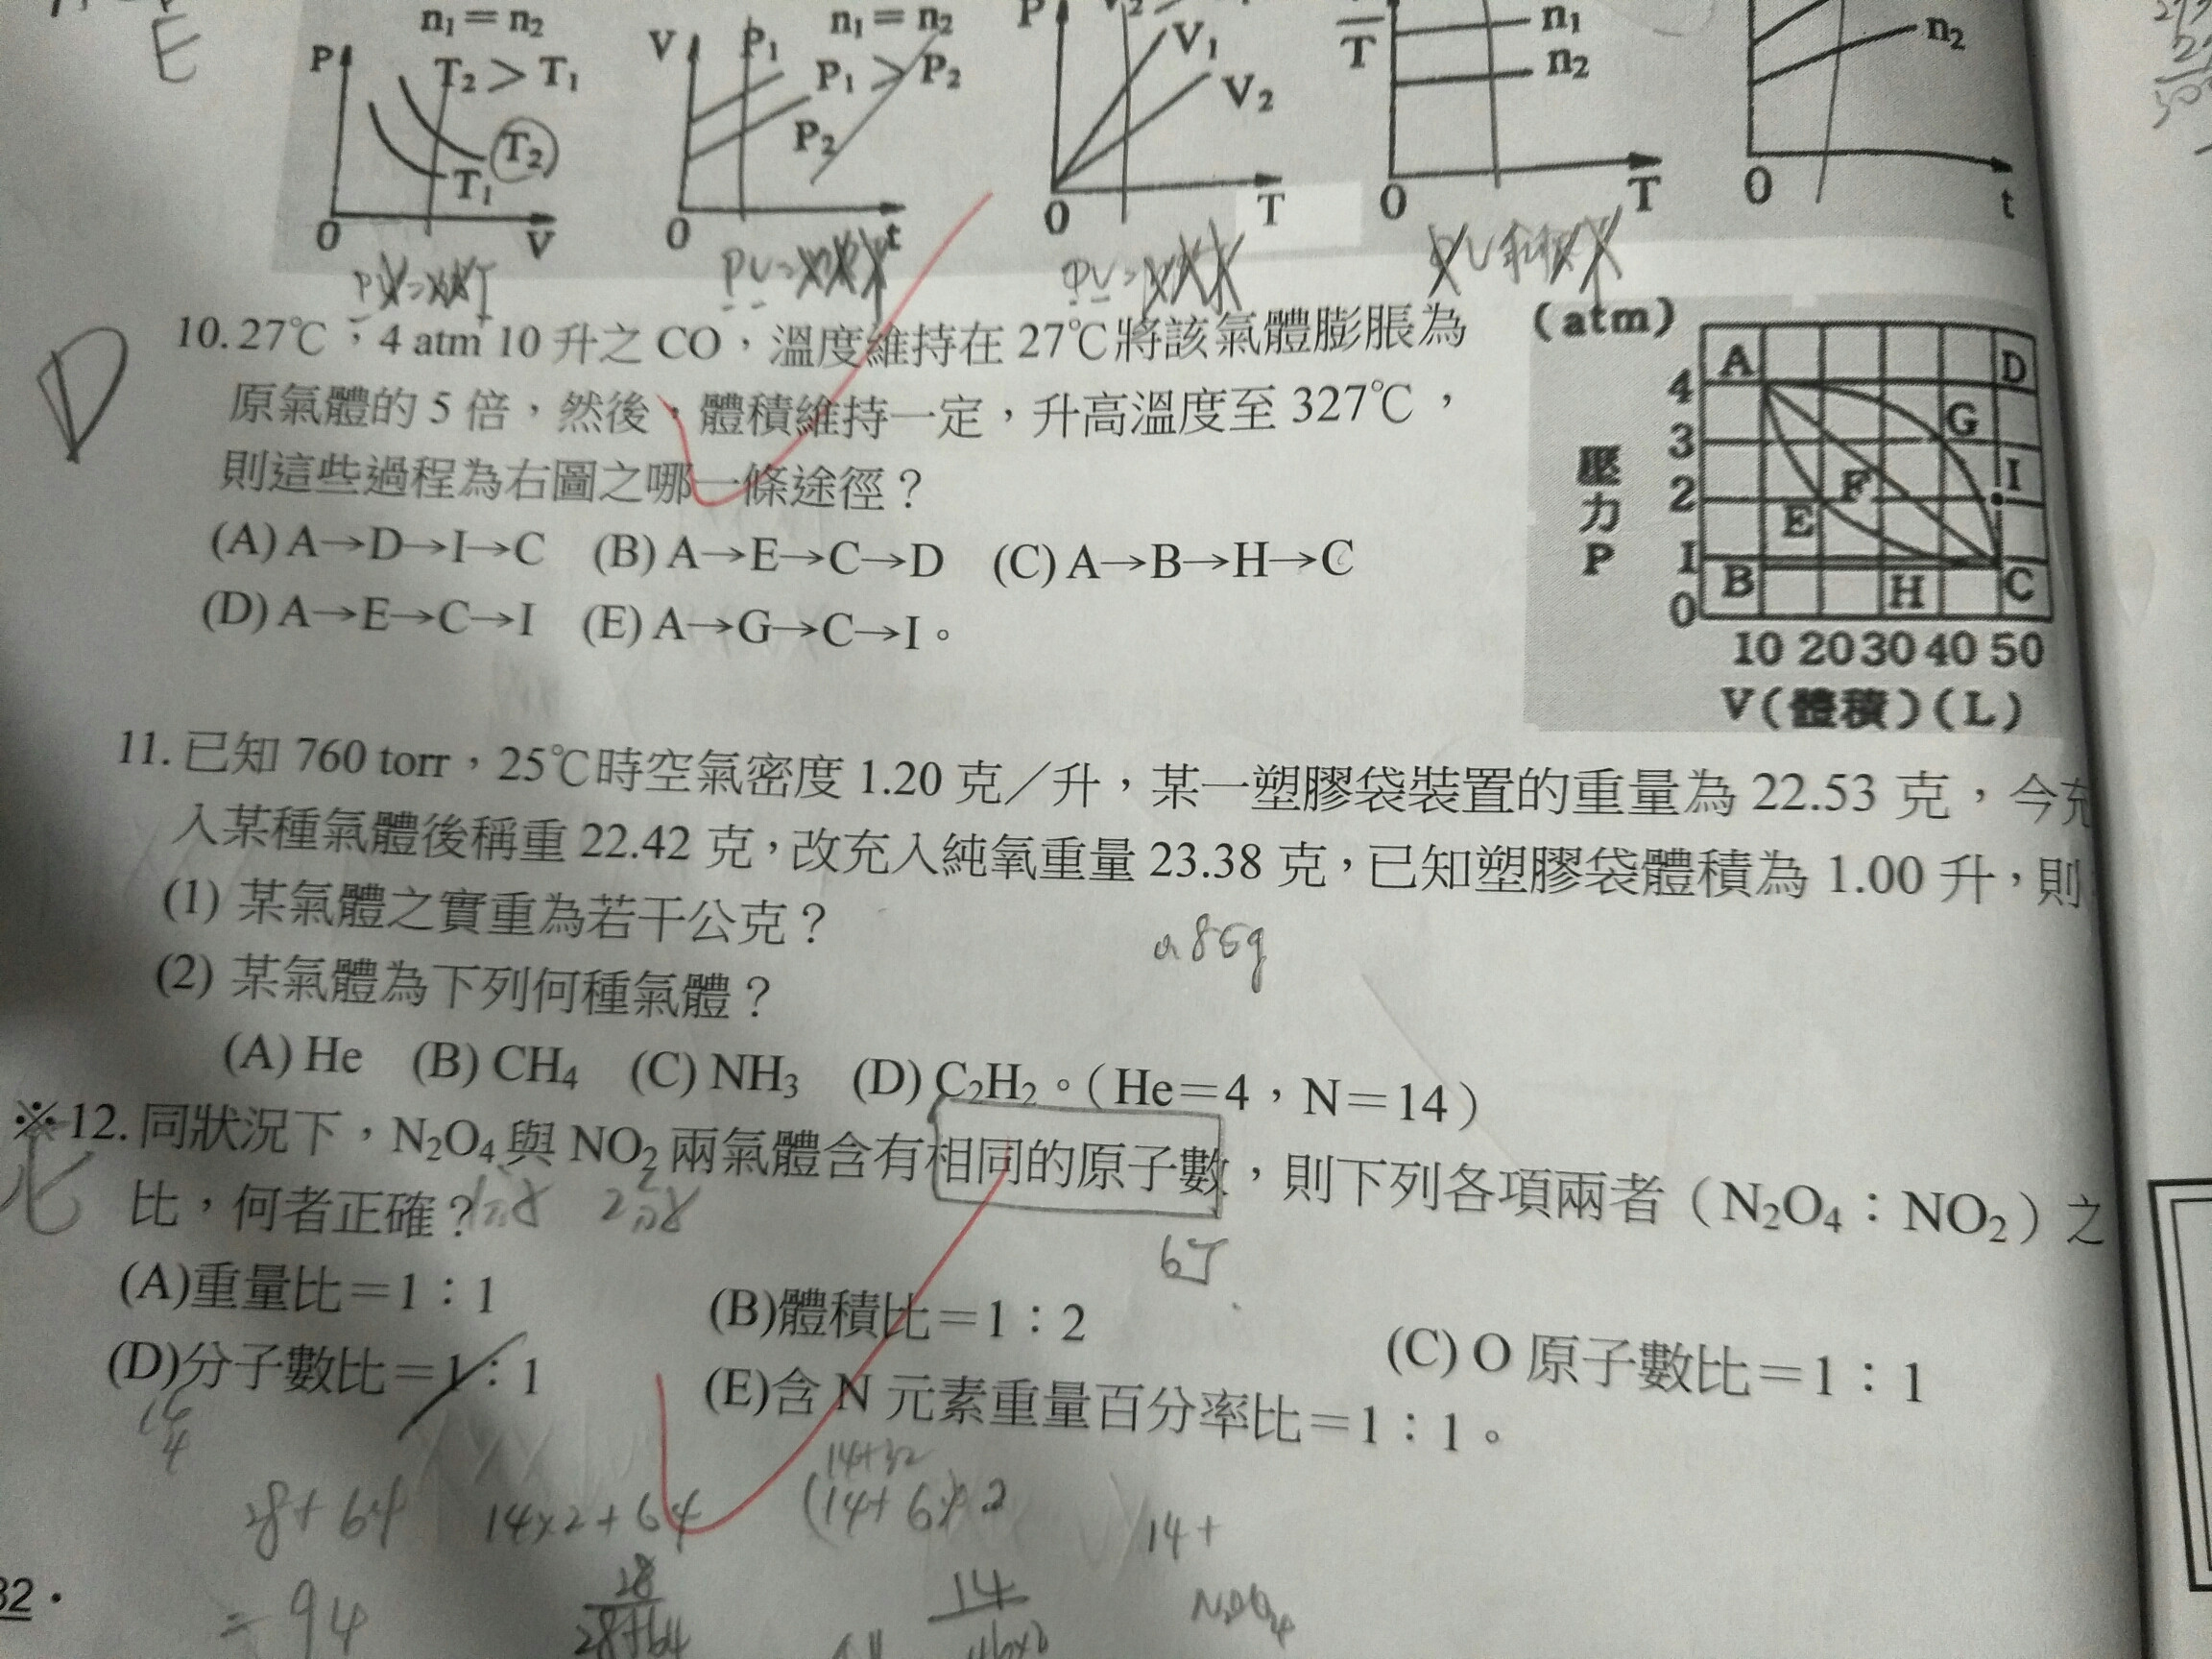 E
n₁＝n₂
n₁＝n₂
P
T₂＞T₁
T₂
T₁
0
V
V
P₁
P₁＞P₂
P₂
0
t
P
V₁
V₂
0
T
T
n₁
n₂
0
T
n₂
0
t
D
10. 27℃，4 atm 10 升之 CO，溫度維持在 27℃將該氣體膨脹為
原氣體的 5 倍，然後，體積維持一定，升高溫度至 327℃，
則這些過程為右圖之哪一條途徑？
(A) A→D→I→C (B) A→E→C→D (C) A→B→H→C
(D) A→E→C→I (E) A→G→C→I。
(atm)
A
D
4
G
3
I
F
2
E
1
B
H
C
0
壓力 P
10 20 30 40 50
V(體積)(L)
11. 已知 760 torr，25℃時空氣密度 1.20 克／升，某一塑膠袋裝置的重量為 22.53 克，今充
入某種氣體後稱重 22.42 克，改充入純氧重量 23.38 克，已知塑膠袋體積為 1.00 升，則
(1) 某氣體之實重為若干公克？
(2) 某氣體為下列何種氣體？
(A) He (B) CH₄ (C) NH₃ (D) C₂H₂。（He＝4，N＝14）
※12. 同狀況下，N₂O₄與 NO₂ 兩氣體含有相同的原子數，則下列各項兩者（N₂O₄：NO₂）之
比，何者正確？
(A)重量比＝1：1 (B)體積比＝1：2 (C) O 原子數比＝1：1
(D)分子數比＝1：1 (E)含 N 元素重量百分率比＝1：1。
14+32
28+64 14×2+64
14+
=94
28
28+64
14
32·